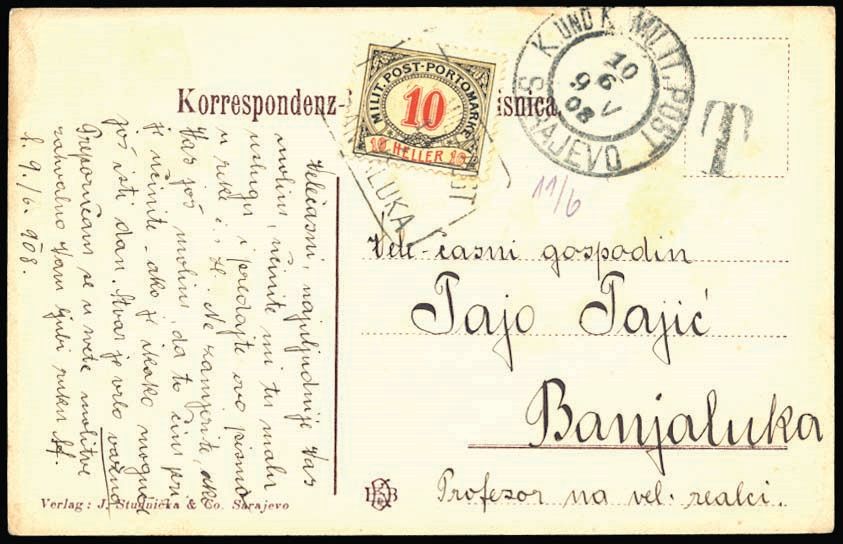 Korrespondenz-
isnica.
MILIT. POST-PORTOMARKE
10
10 HELLER 10
LUKA
K. UND K. MILIT. POST
10
6
9 V
08
SARAJEVO
T
11/6
Vele-časni gospodin
Tajo Tajić
Banjaluka
Profesor na vel. realci.
Velečasni, najuljudnije Vas
molim, učinite mi tu malu
uslugu i predajte ovo pismo
u ruke Ne zamjerite, ako
Vas još molim, da to čim pri-
je učinite - ako je ikako moguće
još isti dan. Stvar je vrlo važna
Preporučam se u svete molitve
zahvalno Vam ljubi ruku
S. 9./6. 908.
Verlag: J. Studnička & Co. Sarajevo
B